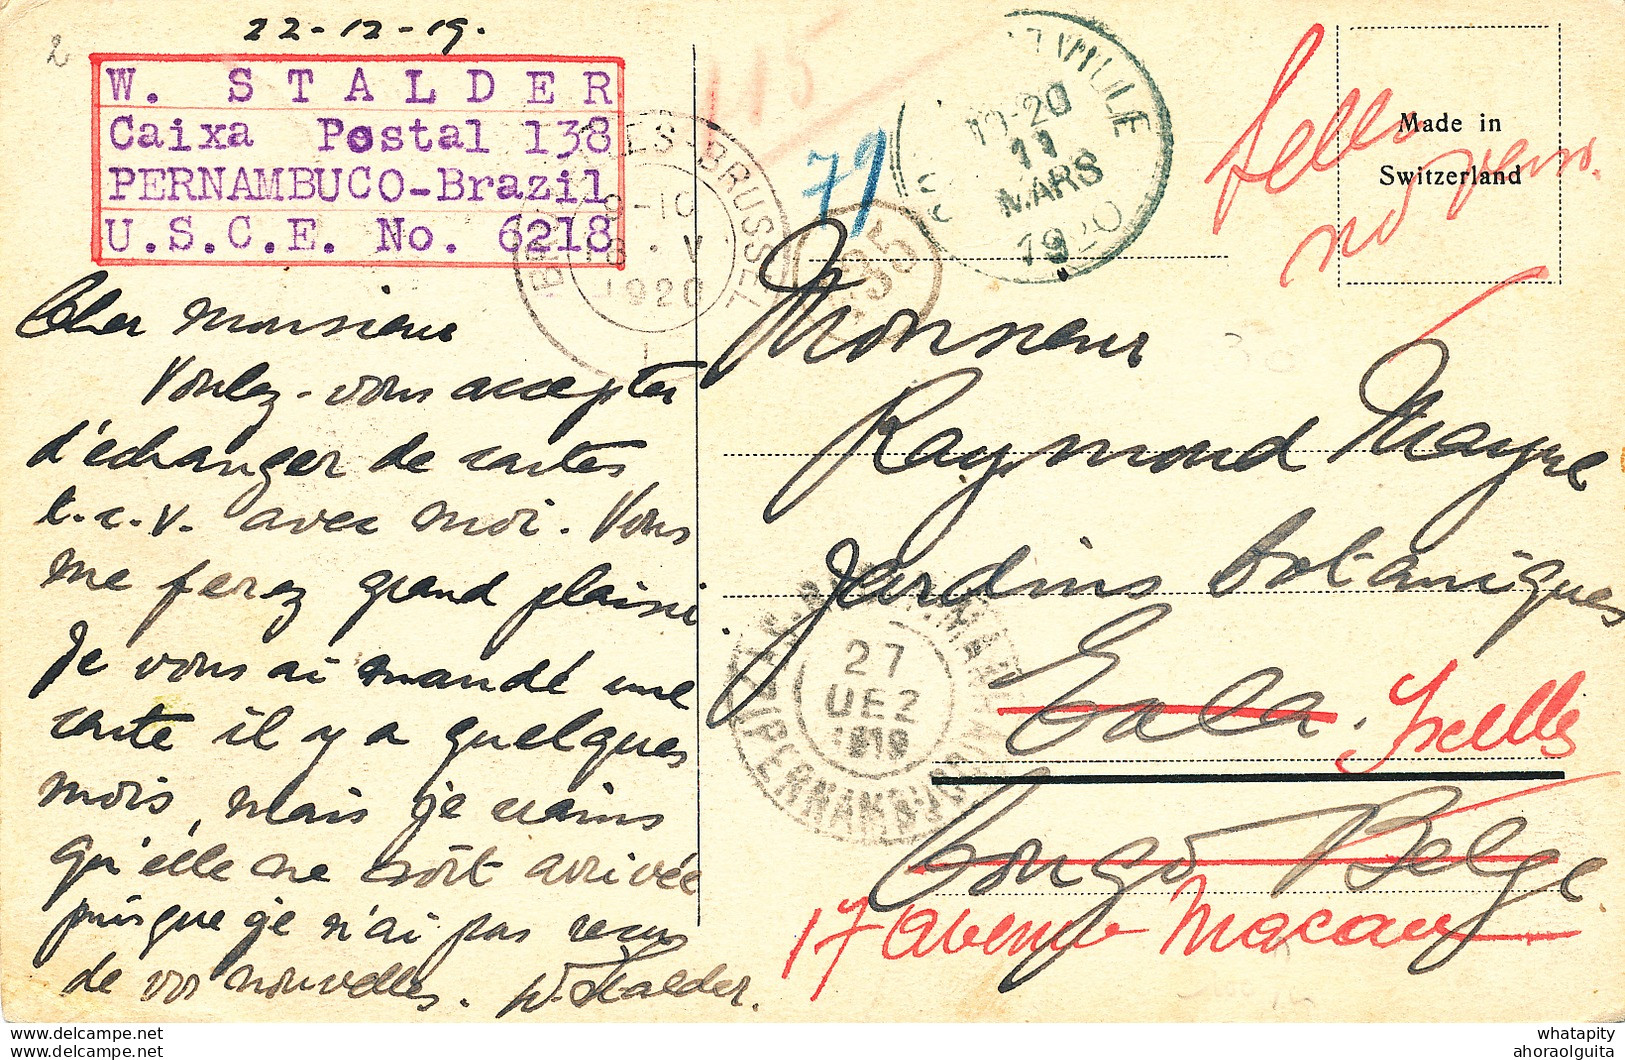 2
22-12-19.
W. STALDER
Caixa Postal 138
PERNAMBUCO-Brazil
U.S.C.E. No. 6218
Cher monsieur
Voulez-vous accepter
d'échanger de cartes
t.c.v. avec moi. Vous
me ferez grand plaisir.
Je vous ai mandé une
carte il y a quelques
mois, mais je crains
qu'elle ne soit arrivée
puisque je n'ai pas reçus
de vos nouvelles. W. Stalder.
115
79
BRUXELLES-BRUSSEL
9-10
18 · V
1920
1
235
19-20
11
MARS
1920
Made in
Switzerland
Monsieur
Raymond Mayné
Jardins botaniques
Eala. Ixelles
Congo Belge
17 avenue Macau
27
DEZ
1919
PERNAMBUCO
delcampe.net
delcampe.net
whatapity
ahoraolguita